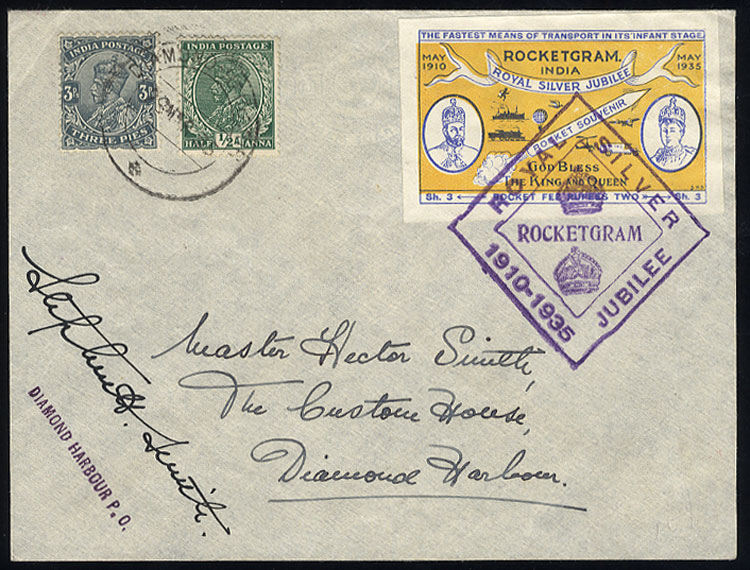 INDIA POSTAGE
3P
3P
THREE PIES
INDIA POSTAGE
1/2A
HALF ANNA
THE FASTEST MEANS OF TRANSPORT IN ITS INFANT STAGE
MAY 1910
ROCKETGRAM.
INDIA
MAY 1935
ROYAL SILVER JUBILEE
ROCKET SOUVENIR
GOD BLESS
THE KING AND QUEEN
Sh. 3
ROCKET FEE RUPEES TWO
Sh. 3
ROYAL SILVER
ROCKETGRAM
1910-1935
JUBILEE
Stephen H. Smith.
DIAMOND HARBOUR P.O.
Master Hector Smith,
The Custom House,
Diamond Harbour.